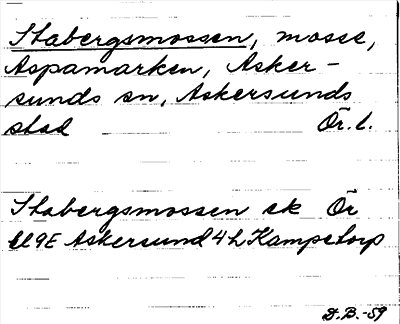 Stabergsmossen, mosse,
Aspamarken, Asker-
sunds sn, Askersunds
stad Ör. l.
Stabergsmossen ek Ör
9E Askersund 4 h Kampetorp
D.B.-59